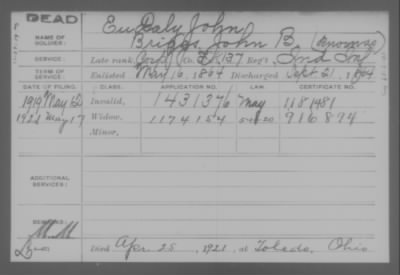 DEAD
Eu Daly John
NAME OF SOLDIER: Briggs, John B. (
SERVICE: Late rank, Corp Co. 137 Reg't, Ind Inf
TERM OF SERVICE: Enlisted May 16, 1864 Discharged Sept 21, 1864
DATE OF FILING. CLASS. APPLICATION NO. LAW. CERTIFICATE NO.
1919 May 12 Invalid, 1431376 May 1181481
1921 May 17 Widow, 1174154 5-1-20 916894
Minor,
ADDITIONAL SERVICES:
REMARKS:
Died Apr. 25, 1921, at Toledo, Ohio